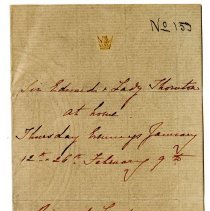 No 153
Sir Edward & Lady Thornton
at home
Thursday Evenings January
12th 26th February 9th